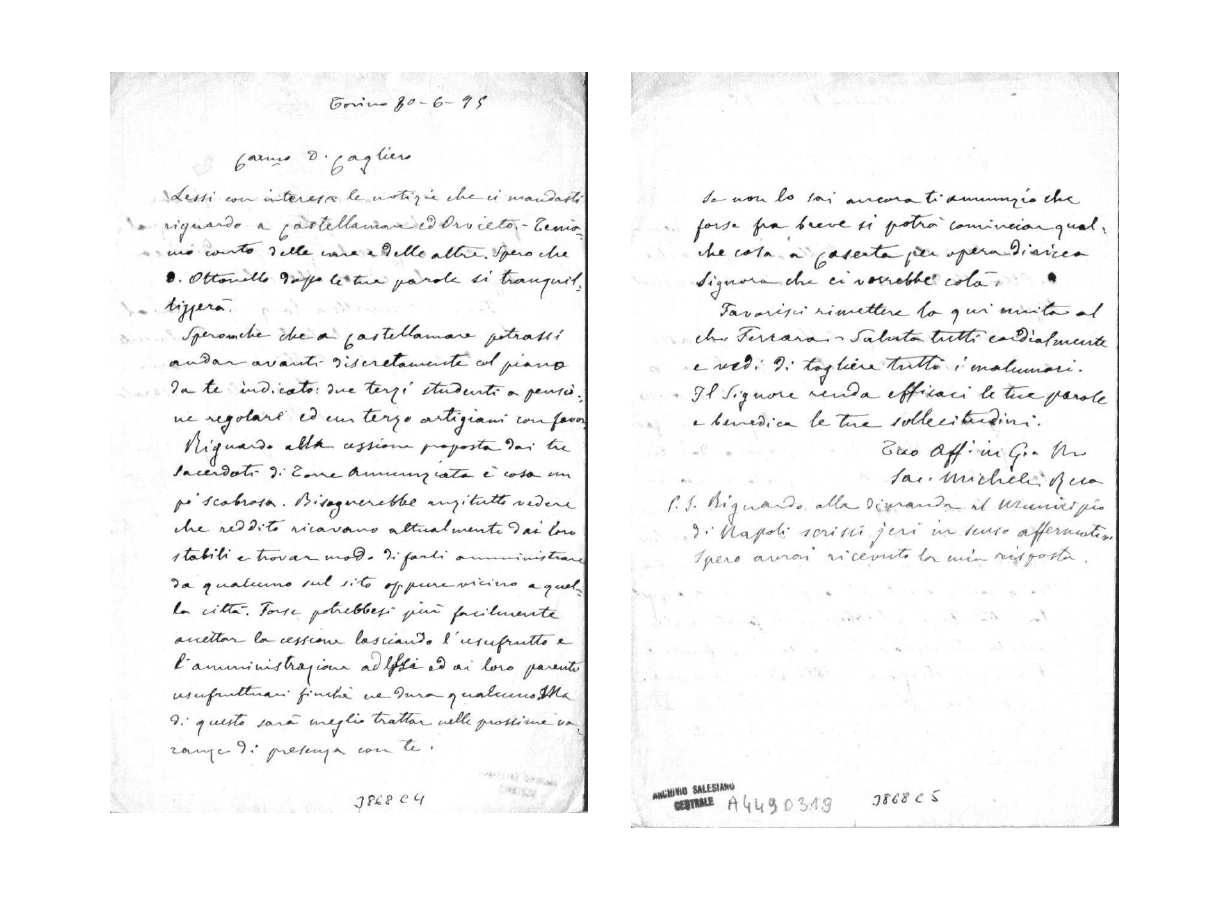 Torino 30-6-95
Carmo D. Cagliero
Lessi con interesse le notizie che ci mandasti
riguardo a Castellamare ed Orvieto. - Tenia-
mo conto delle une e delle altre. Spero che
D. Ottonello dopo le tue parole si tranquil-
lizzerà.
Speriamo che a Castellamare potrassi
andar avanti discretamente col piano
da te indicato: due terzi studenti a pensio-
ne regolare ed un terzo artigiani con favor
Riguardo alla cessione proposta dai tre
sacerdoti di Torre Annunziata è cosa un
po' scabrosa. Bisognerebbe anzitutto vedere
che reddito ricavano attualmente dai loro
stabili e trovar modo di farli amministrare
da qualcuno sul sito oppure vicino a quel-
la città. Forse potrebbesi più facilmente
accettar la cessione lasciando l'usufrutto e
l'amministrazione ad essi ed ai loro parenti
usufruttuari finchè ne dura qualcuno. Ma
di questo sarà meglio trattar nelle prossime va-
canze di presenza con te.
J868 C4
Se non lo sai ancora ti annunzio che
forse fra breve si potrà cominciar qual-
che cosa a Caserta per opera di ricca
Signora che ci vorrebbe colà.
Favorisci rimettere la qui unita al
ch. Ferrara. - Saluta tutti cordialmente
e vedi di togliere tutti i malumori.
Il Signore renda efficaci le tue parole
e benedica le tue sollecitudini.
Tuo Aff. in G. e M.
Sac. Michele Rua
P.S. Riguardo alla dimanda al Municipio
di Napoli scrissi jeri in senso affermativo
Spero avrai ricevuto la mia risposta.
ARCHIVIO SALESIANO
CENTRALE
A4490319
J868 C5